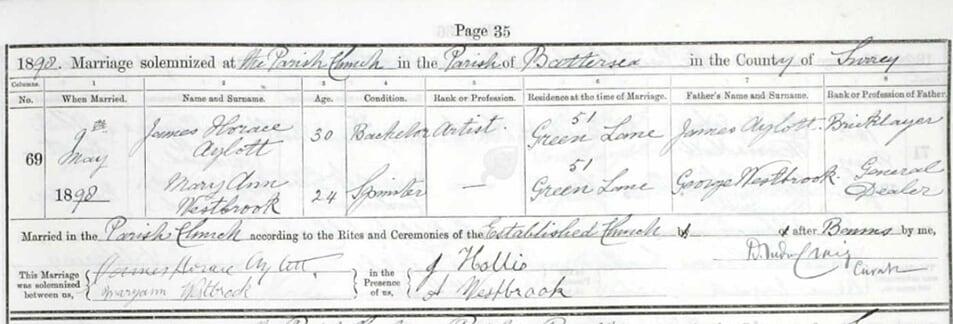 Page 35
1898. Marriage solemnized at the Parish Church in the Parish of Battersea in the County of Surrey
Columns. 1 2 3 4 5 6 7 8
No. When Married. Name and Surname. Age. Condition. Rank or Profession. Residence at the time of Marriage. Father's Name and Surname. Rank or Profession of Father.
69 9th May 1898 James Horace Aylott 30 Bachelor Artist. 51 Green Lane James Aylott. Bricklayer
Mary Ann Westbrook 24 Spinster — 51 Green Lane George Westbrook General Dealer
Married in the Parish Church according to the Rites and Ceremonies of the Established Church after Banns by me,
Craig
Curate
This Marriage was solemnized between us, James Horace Aylott, in the Presence of us, J Hollis
Maryann Westbrook A Westbrook